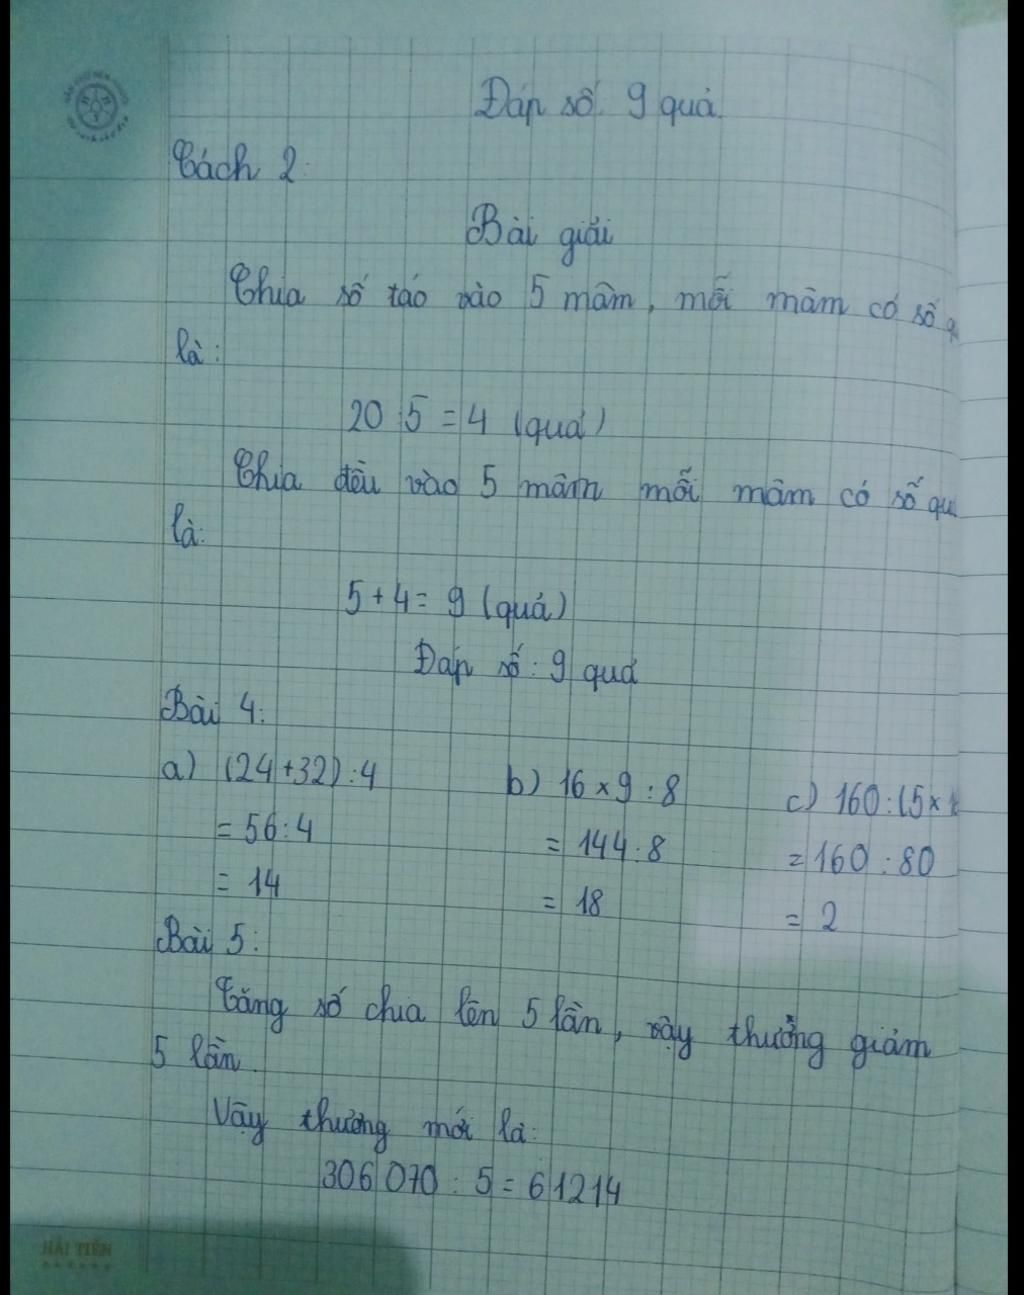 Đáp số: 9 quả
Cách 2:
Bài giải
Chia số táo vào 5 mâm, mỗi mâm có số
là:
20 : 5 = 4 (quả)
Chia đều vào 5 mâm mỗi mâm có số
là:
5 + 4 = 9 (quả)
Đáp số: 9 quả
Bài 4:
a) (24 + 32) : 4 b) 16 × 9 : 8 c) 160 : (5 ×
= 56 : 4 = 144 : 8 = 160 : 80
= 14 = 18 = 2
Bài 5:
Tăng số chia lên 5 lần, vậy thưởng giảm
5 lần.
Vậy thương mới là:
306 070 : 5 = 61214
HẢI TIẾN